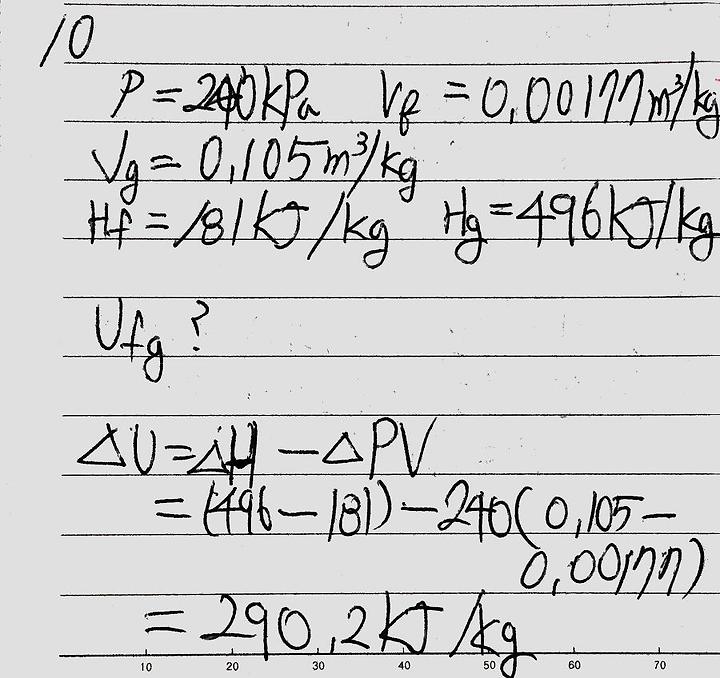 10
P = 240kPa Vf = 0,00177m³/kg
Vg = 0,105m³/kg
Hf = 181kJ/kg Hg = 496kJ/kg
Ufg ?
ΔU = ΔH − ΔPV
= (496 − 181) − 240(0,105 −
0,00177)
= 290,2kJ/kg
10 20 30 40 50 60 70